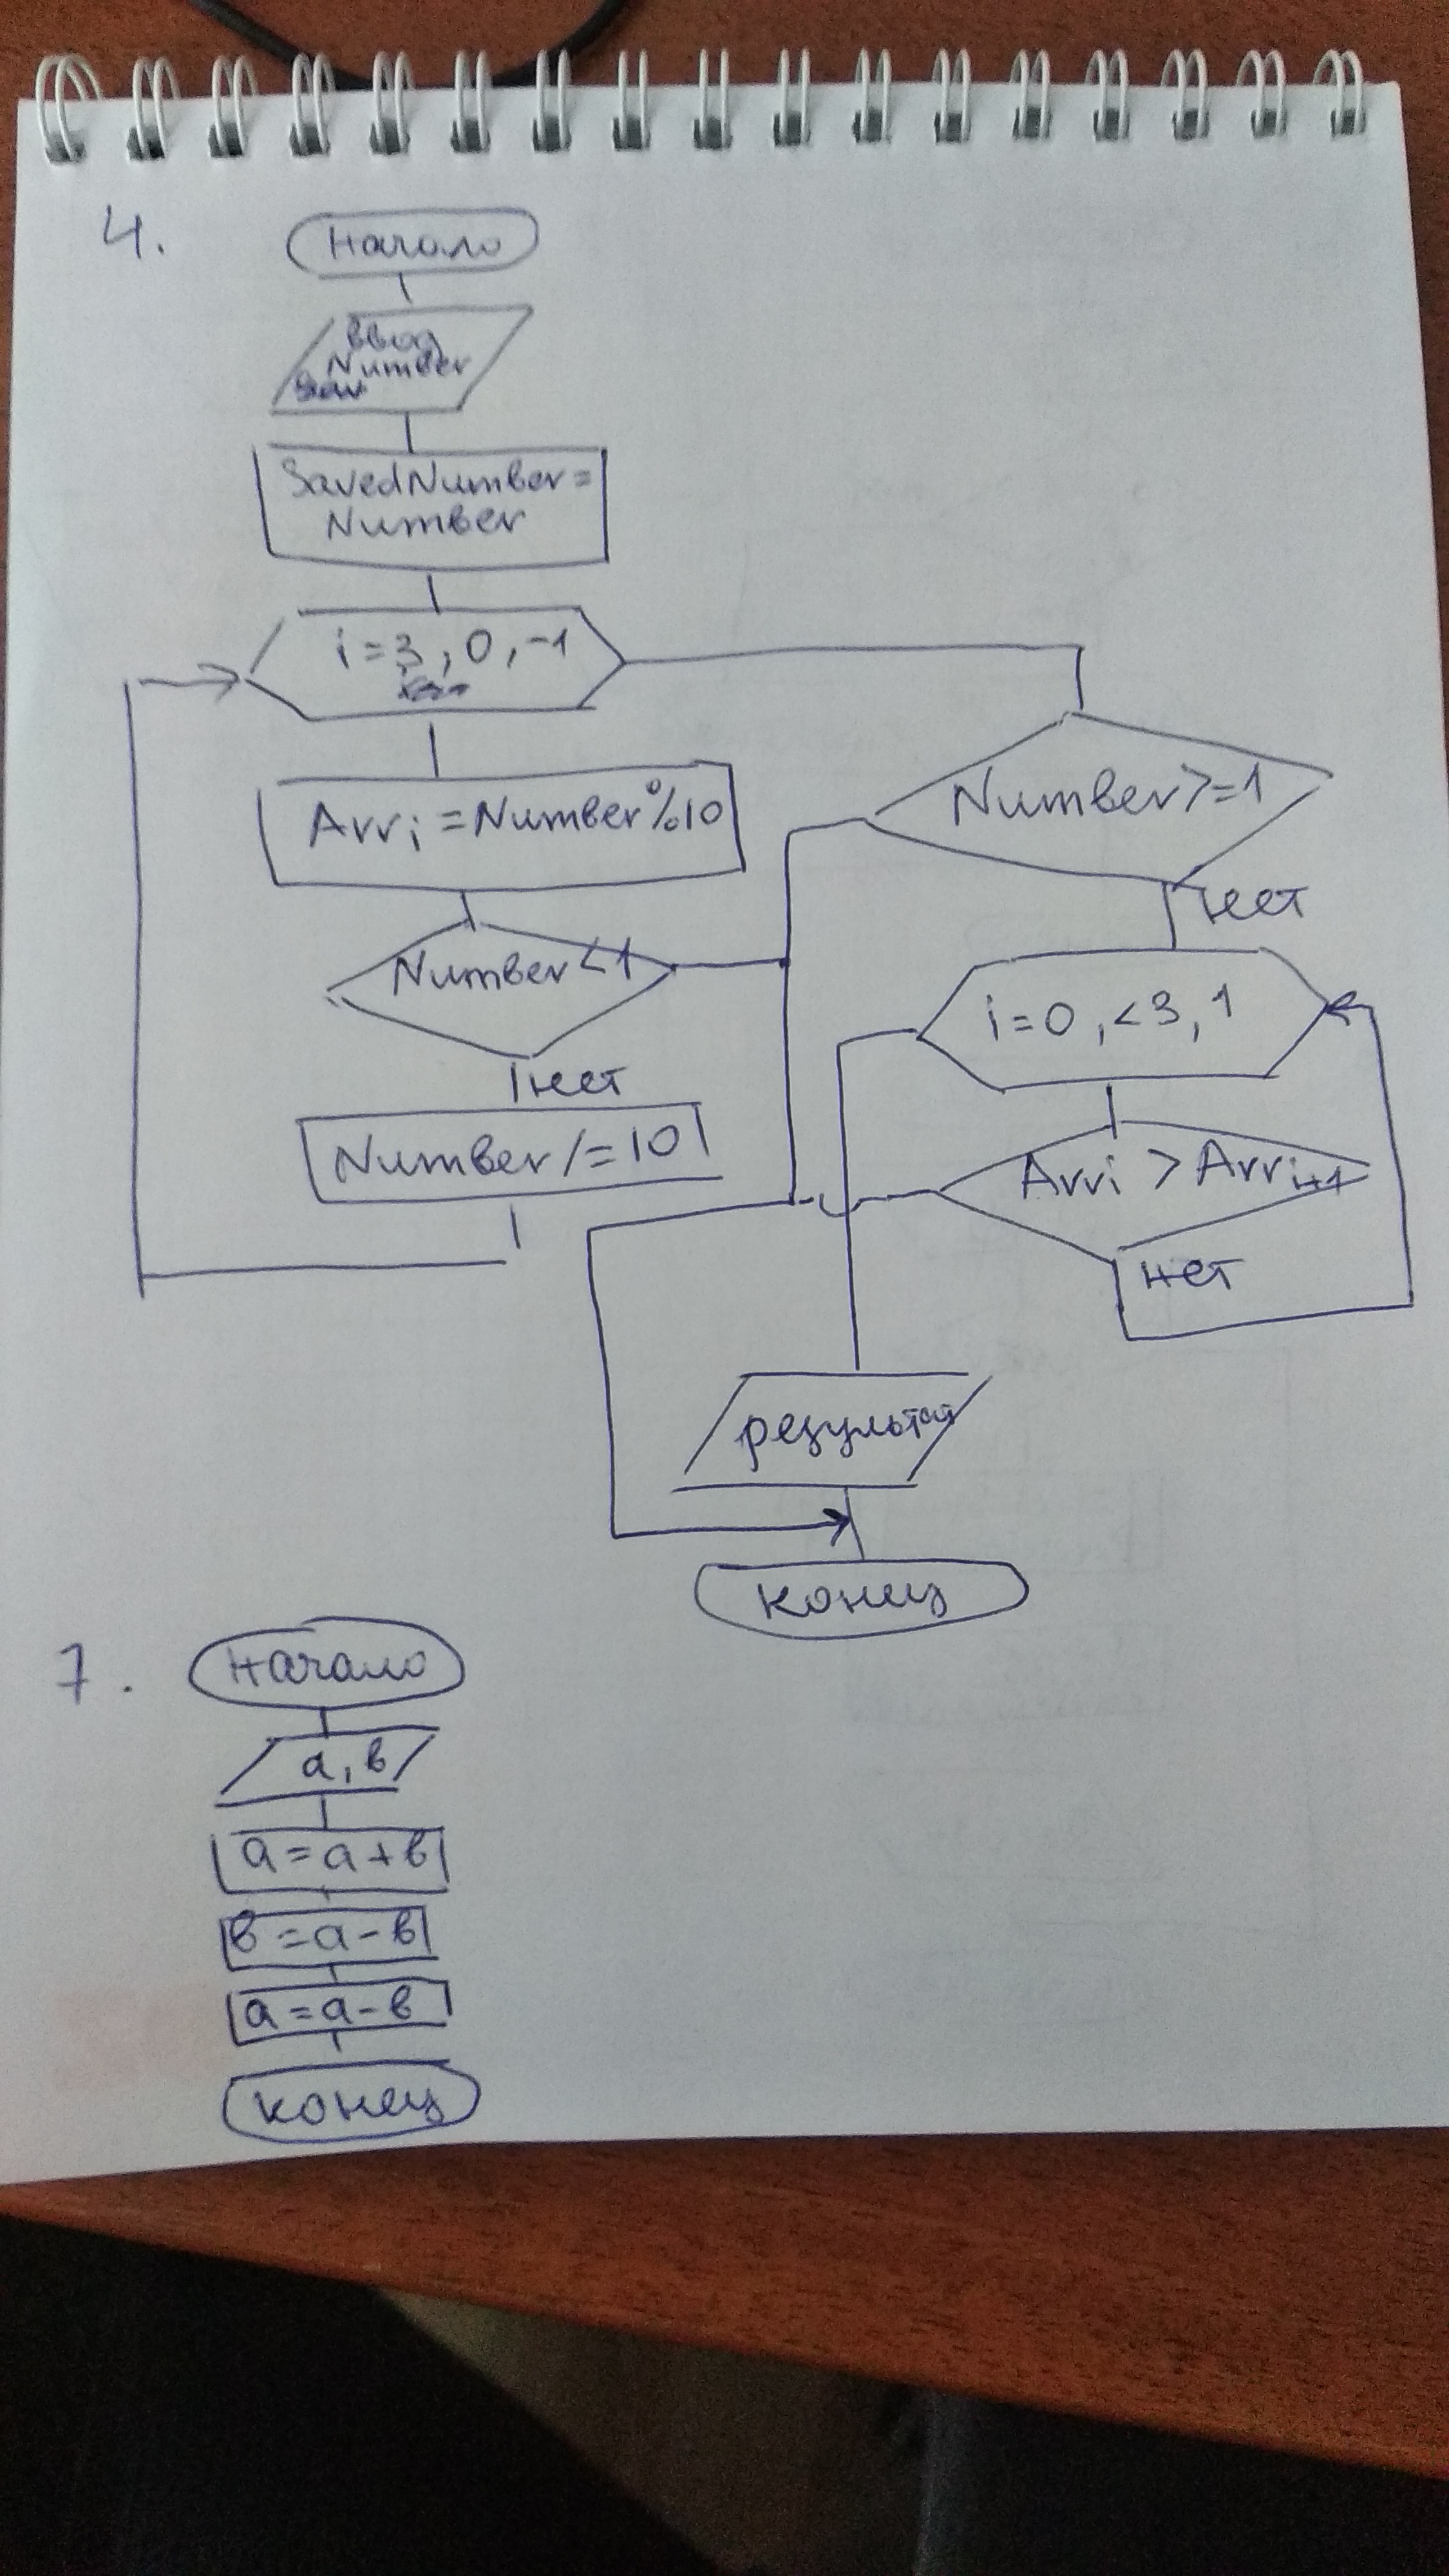 4.
Начало
Ввод
Number
SavedNumber =
Number
i = 3, 0, -1
Arri = Number % 10
Number < 1
нет
Number /= 10
Number >= 1
нет
i = 0, < 3, 1
Arri > Arri+1
нет
результат
конец
7.
Начало
a, b
a = a + b
b = a - b
a = a - b
конец